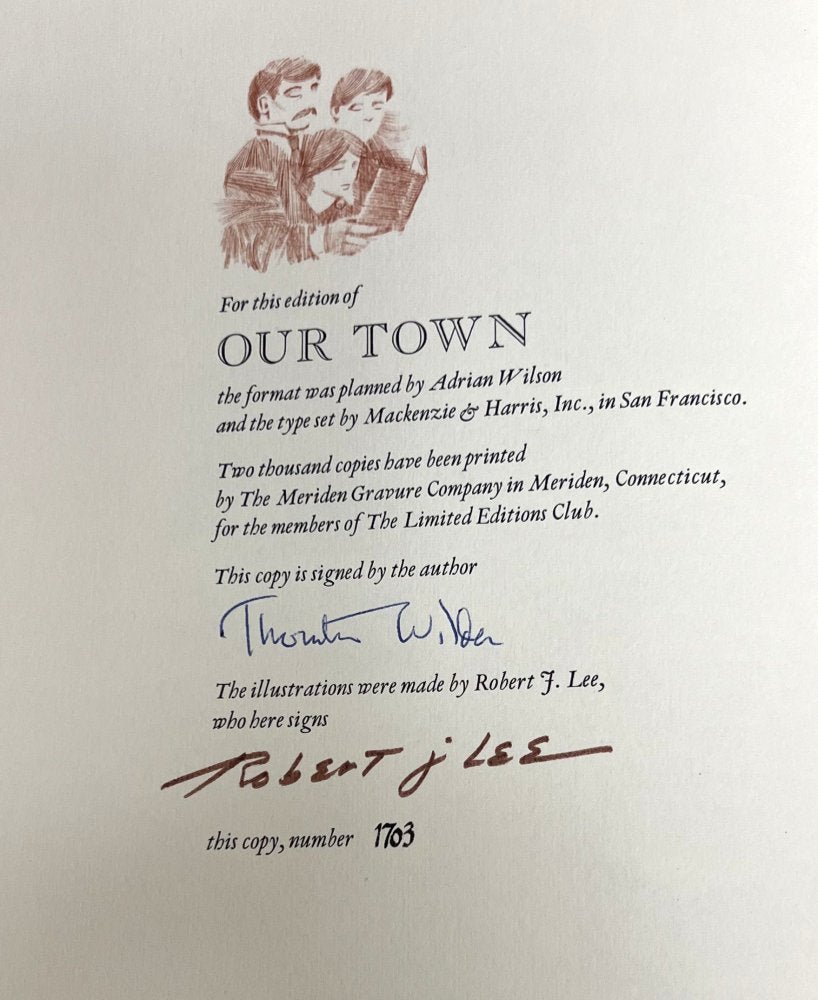 For this edition of
OUR TOWN
the format was planned by Adrian Wilson
and the type set by Mackenzie & Harris, Inc., in San Francisco.
Two thousand copies have been printed
by The Meriden Gravure Company in Meriden, Connecticut,
for the members of The Limited Editions Club.
This copy is signed by the author
Thornton Wilder
The illustrations were made by Robert J. Lee,
who here signs
Robert j Lee
this copy, number 1703